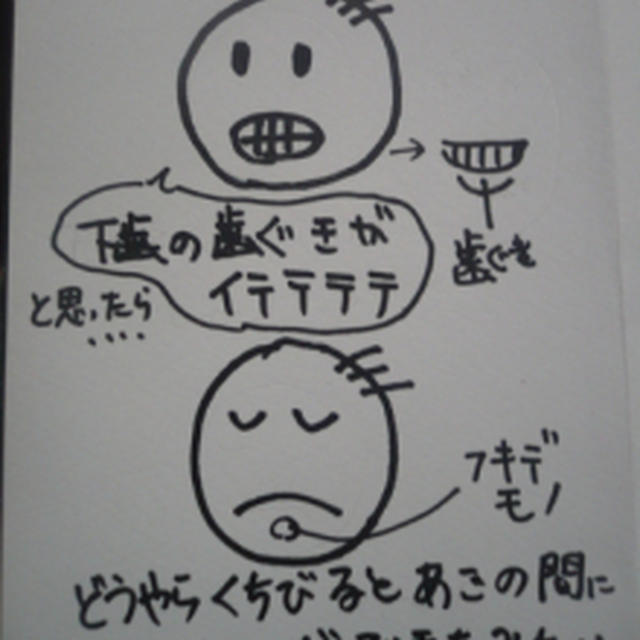 下歯の歯ぐきが
イテテテテ
歯ぐき
と思ったら
....
フキデ
モノ
どうやらくちびるとあごの間に